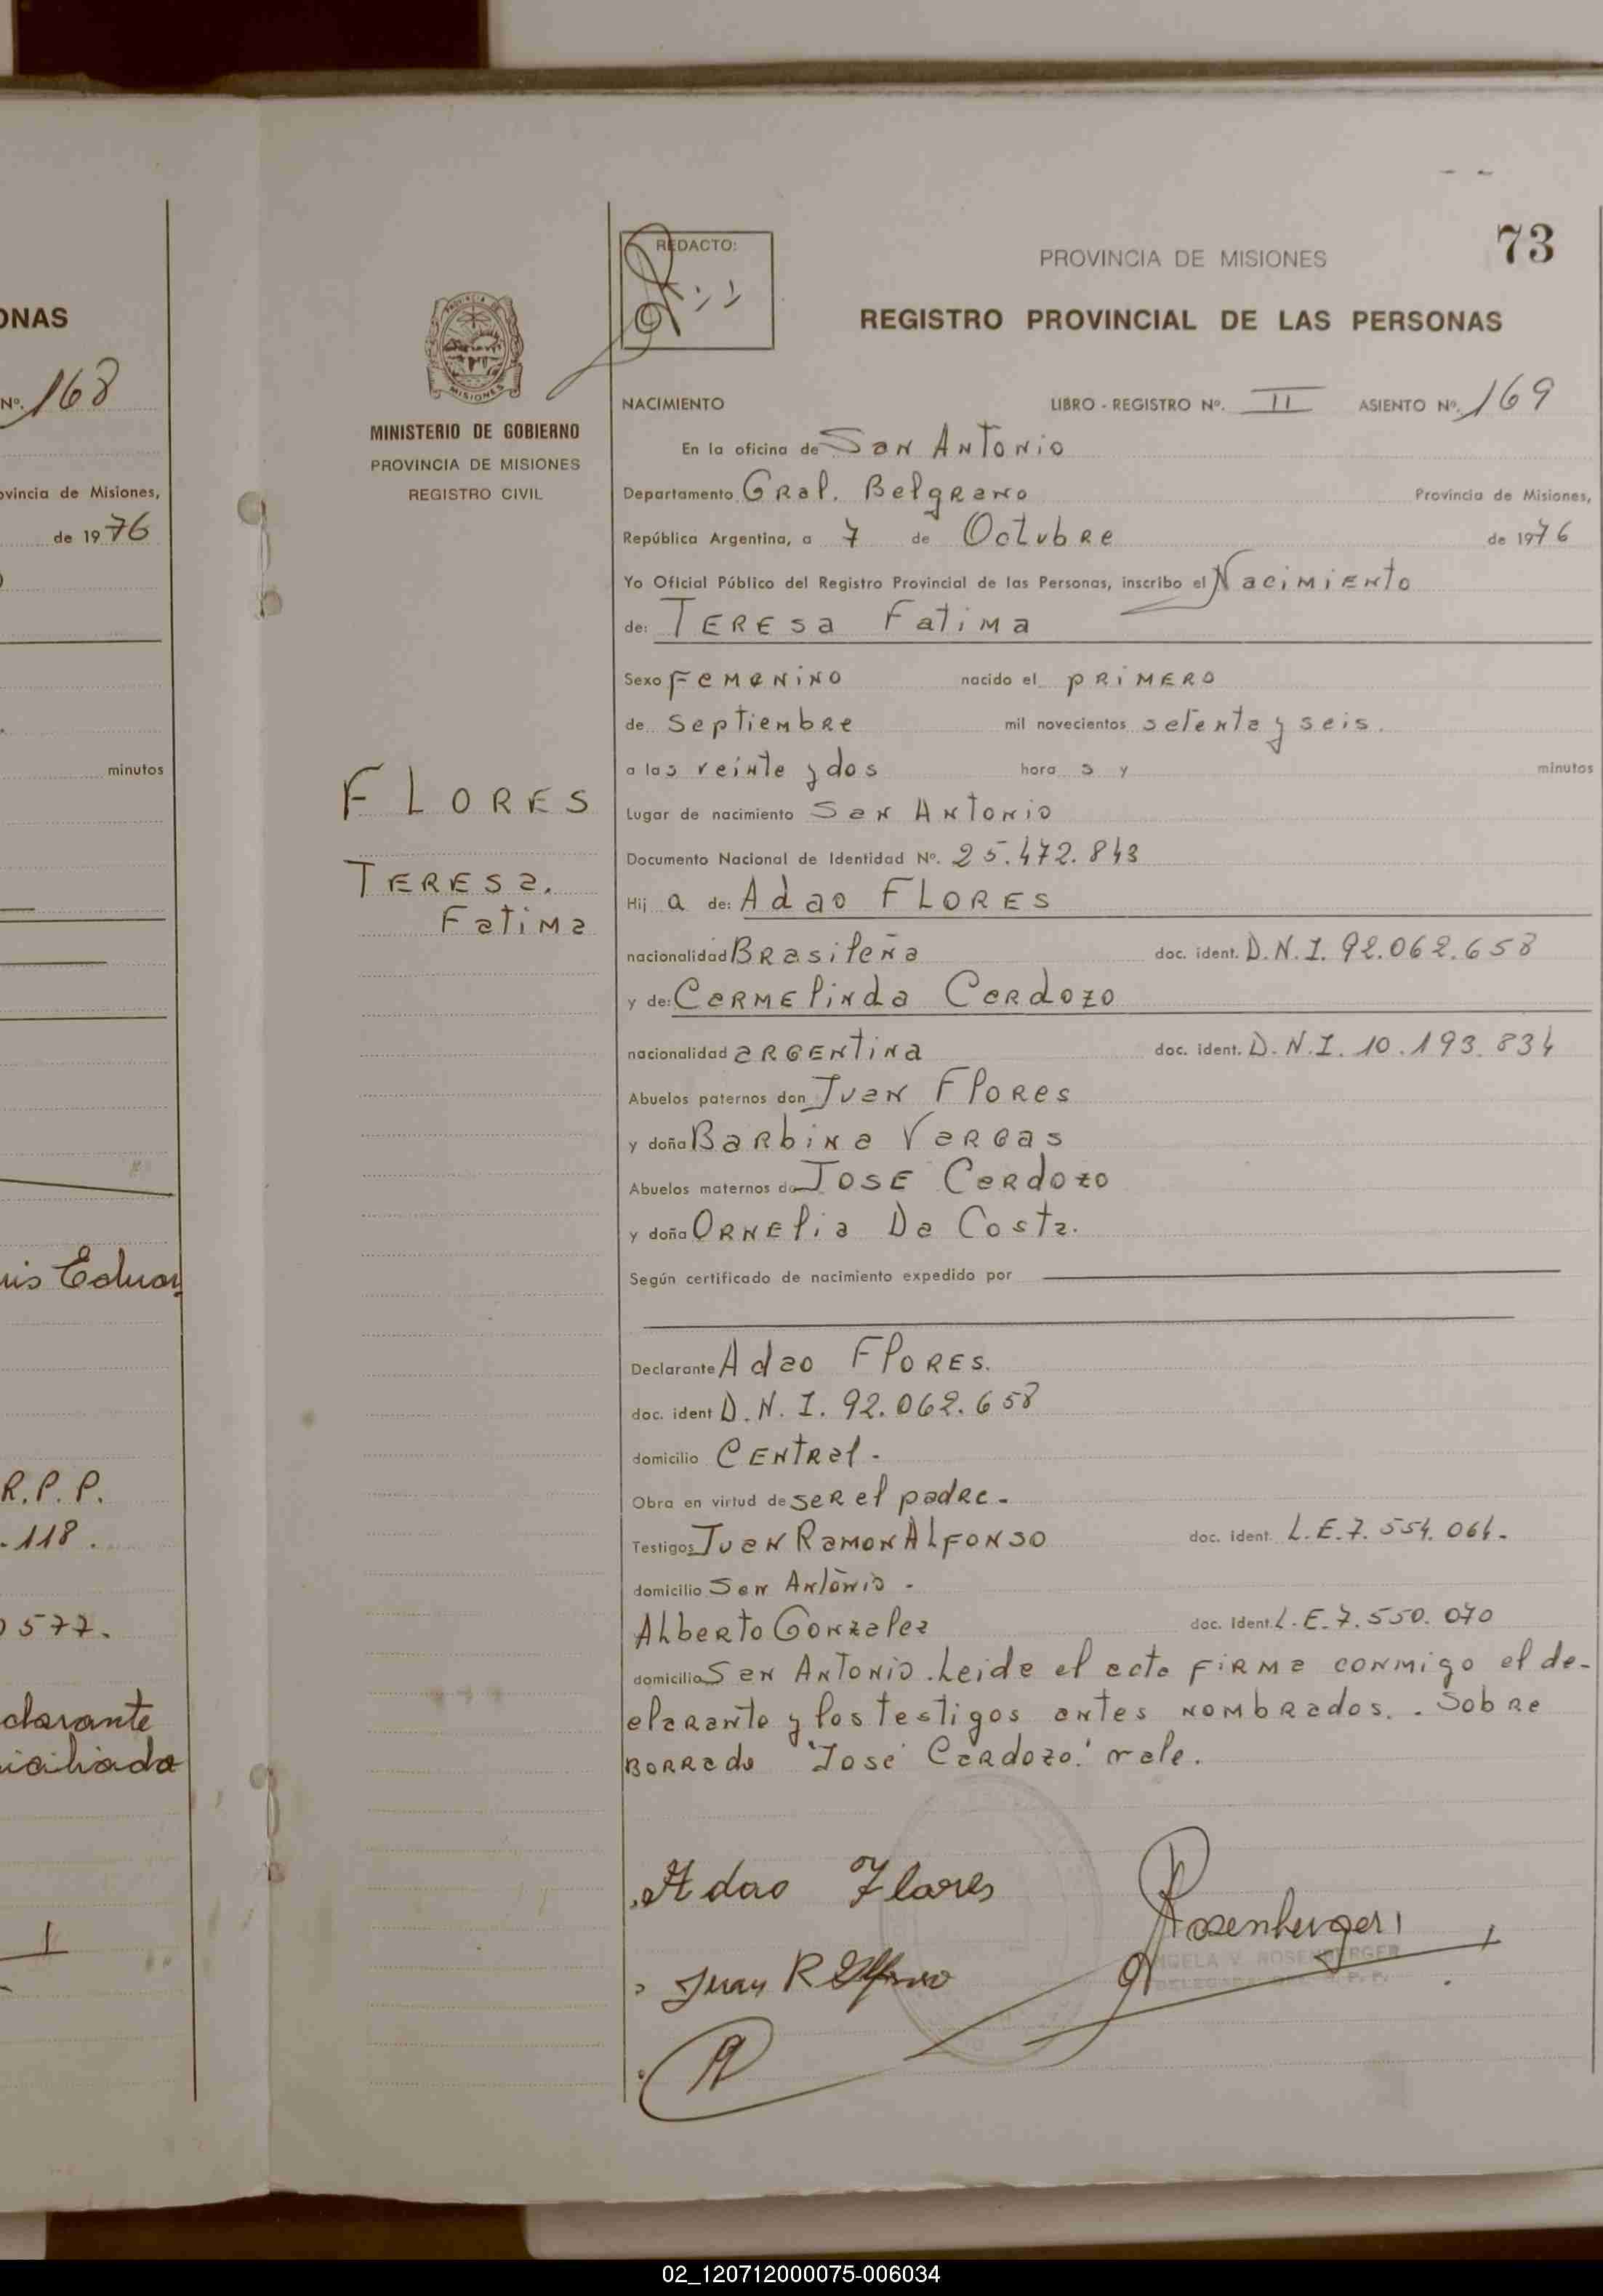 ONAS
Nº. 168
ovincia de Misiones,
de 1976
minutos
uis Eduar
R.P.P.
-118.
0577.
clarante
iciliada
MINISTERIO DE GOBIERNO
PROVINCIA DE MISIONES
REGISTRO CIVIL
FLORES
TERESa.
Fatima
REDACTO:
PROVINCIA DE MISIONES
73
REGISTRO PROVINCIAL DE LAS PERSONAS
NACIMIENTO LIBRO - REGISTRO Nº. II ASIENTO Nº. 169
En la oficina de San Antonio
Departamento Gral. Belgrano Provincia de Misiones,
República Argentina, a 7 de Octubre de 1976
Yo Oficial Público del Registro Provincial de las Personas, inscribo el Nacimiento
de: TERESa Fatima
Sexo Femenino nacido el primero
de Septiembre mil novecientos setenta y seis.
a las veinte y dos hora s y minutos
Lugar de nacimiento San Antonio
Documento Nacional de Identidad Nº. 25.472.843
Hij a de: Adao FLORES
nacionalidad Brasileña doc. ident. D.N.I. 92.062.658
y de: Carmelinda Cardozo
nacionalidad argentina doc. ident. D.N.I. 10.193.834
Abuelos paternos don Juan Flores
y doña Barbina Vargas
Abuelos maternos do JOSE Cardozo
y doña Ornelia Da Costa.
Según certificado de nacimiento expedido por
Declarante Adao Flores.
doc. ident D.N.I. 92.062.658
domicilio Central -
Obra en virtud de ser el padre -
Testigos Juan Ramon Alfonso doc. ident. L.E. 7.554.064-
domicilio San Antonio -
Alberto Gonzalez doc. ident. L.E. 7.550.070
domicilio San Antonio. Leida el acta firma conmigo el de-
clarante y los testigos antes nombrados. - Sobre
Borrado "José Cardozo" vale.
Adao Flores
Rosenberger
ANGELA V. ROSENBERGER
DELEGADA R. P. P.
Juan R Alfonso
02_120712000075-006034